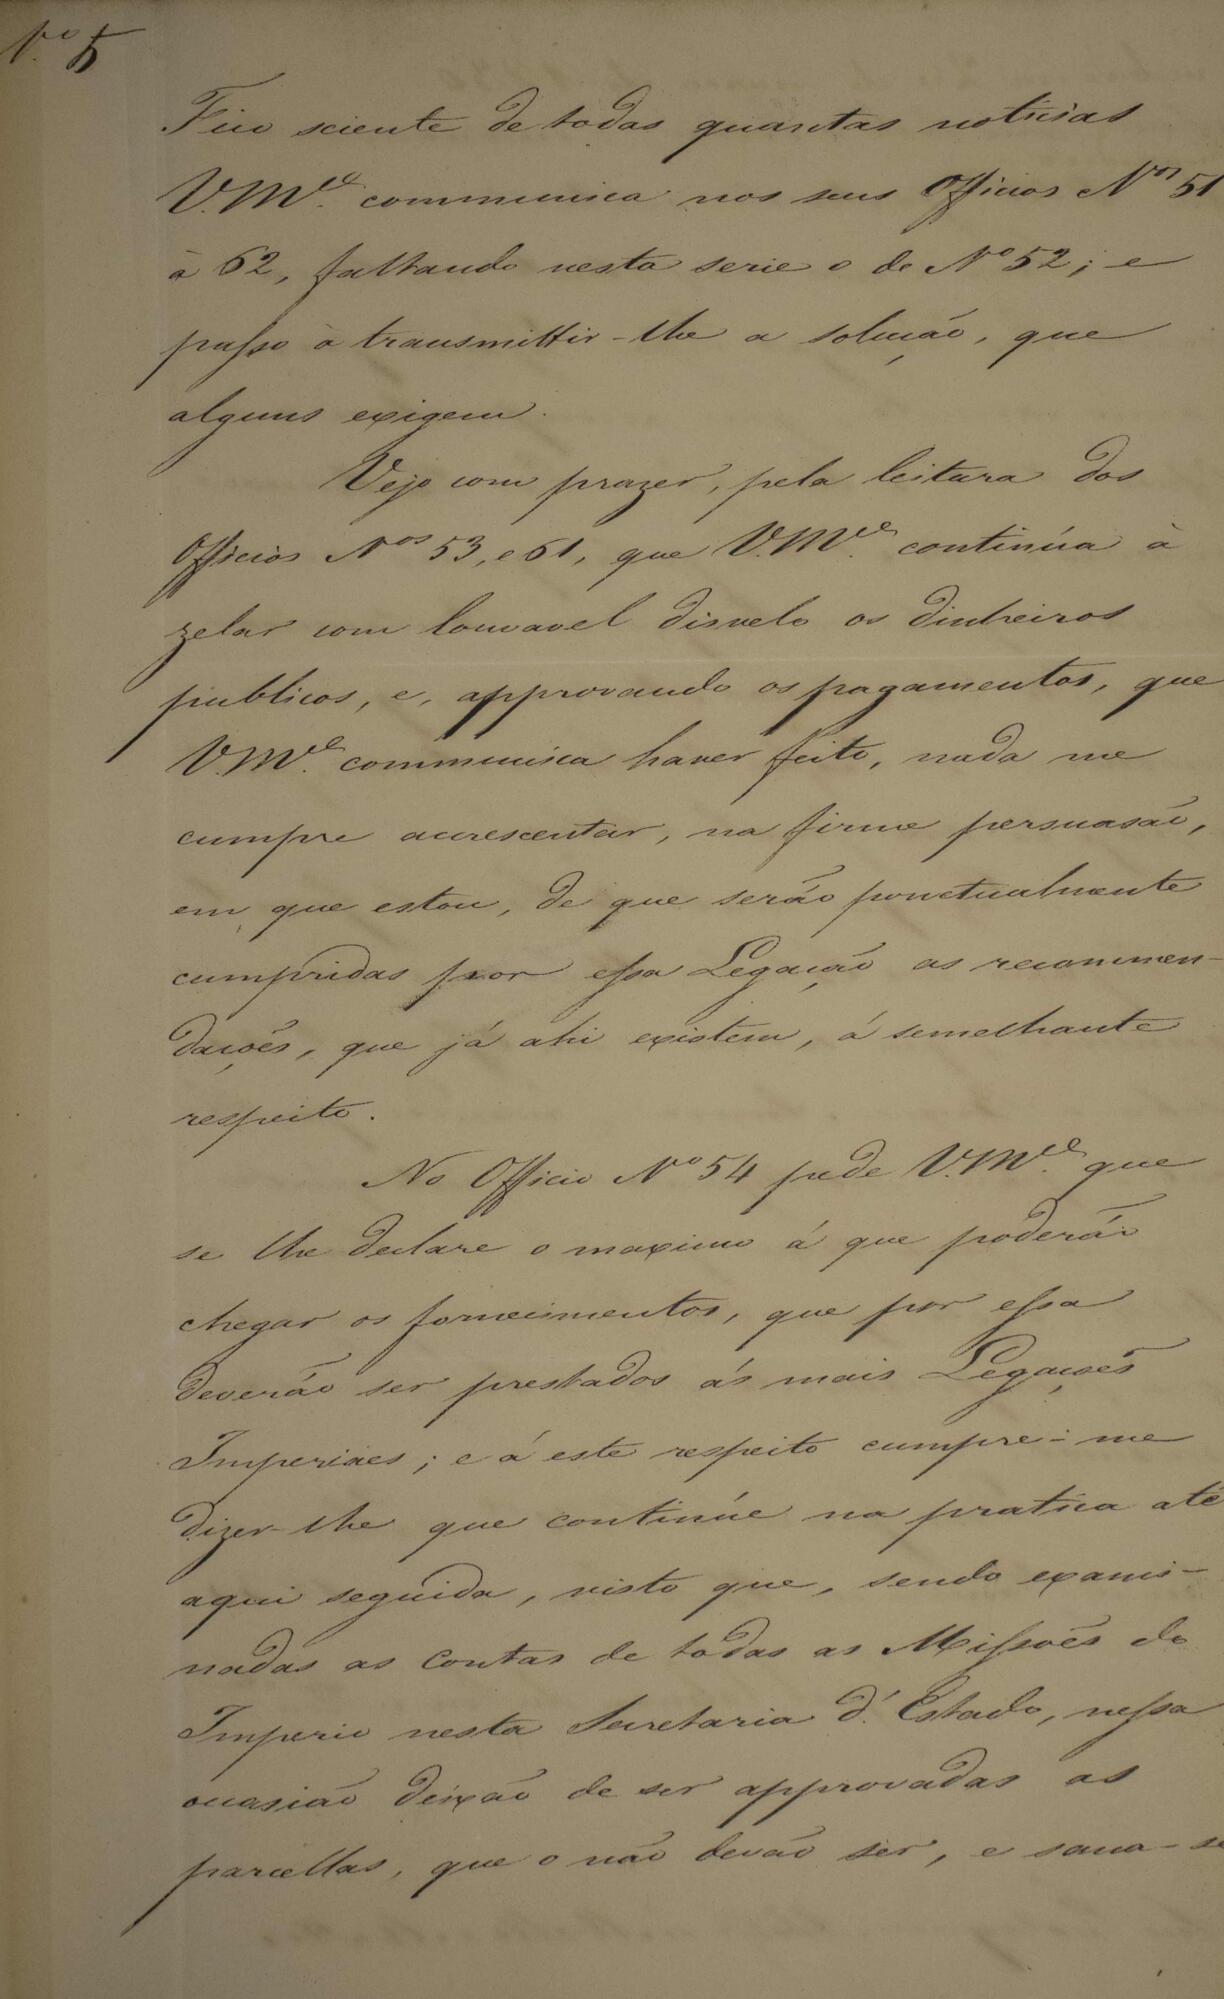 Nº 5
Fico sciente de todas quantas noticias
V.M.ce communica nos seus Officios Nos 51
à 62, faltando nesta serie o de Nº 52; e
passo à transmittir-lhe a solução, que
alguns exigem.
Vejo com prazer, pela leitura dos
Officios Nos 53, e 61, que V.M.ce continúa à
zelar com louvavel disvelo os dinheiros
publicos, e, approvando os pagamentos, que
V.M.ce communica haver feito, nada me
cumpre accrescentar, na firme persuasão,
em que estou, de que serão ponctualmente
cumpridas por essa Legação as recommen-
dações, que já ahi existem, á semelhante
respeito.
No Officio Nº 54 pede V.M.ce que
se lhe declare o maximo á que poderáõ
chegar os fornecimentos, que por essa
deverão ser prestados ás mais Legações
Imperiaes; e á este respeito cumpre-me
dizer-lhe que continúe na pratica até
aqui seguida, visto que, sendo exami-
nadas as contas de todas as Missões do
Imperio nesta Secretaria d'Estado, nessa
occasião deixão de ser approvadas as
parcellas, que o não devão ser, e sana-se